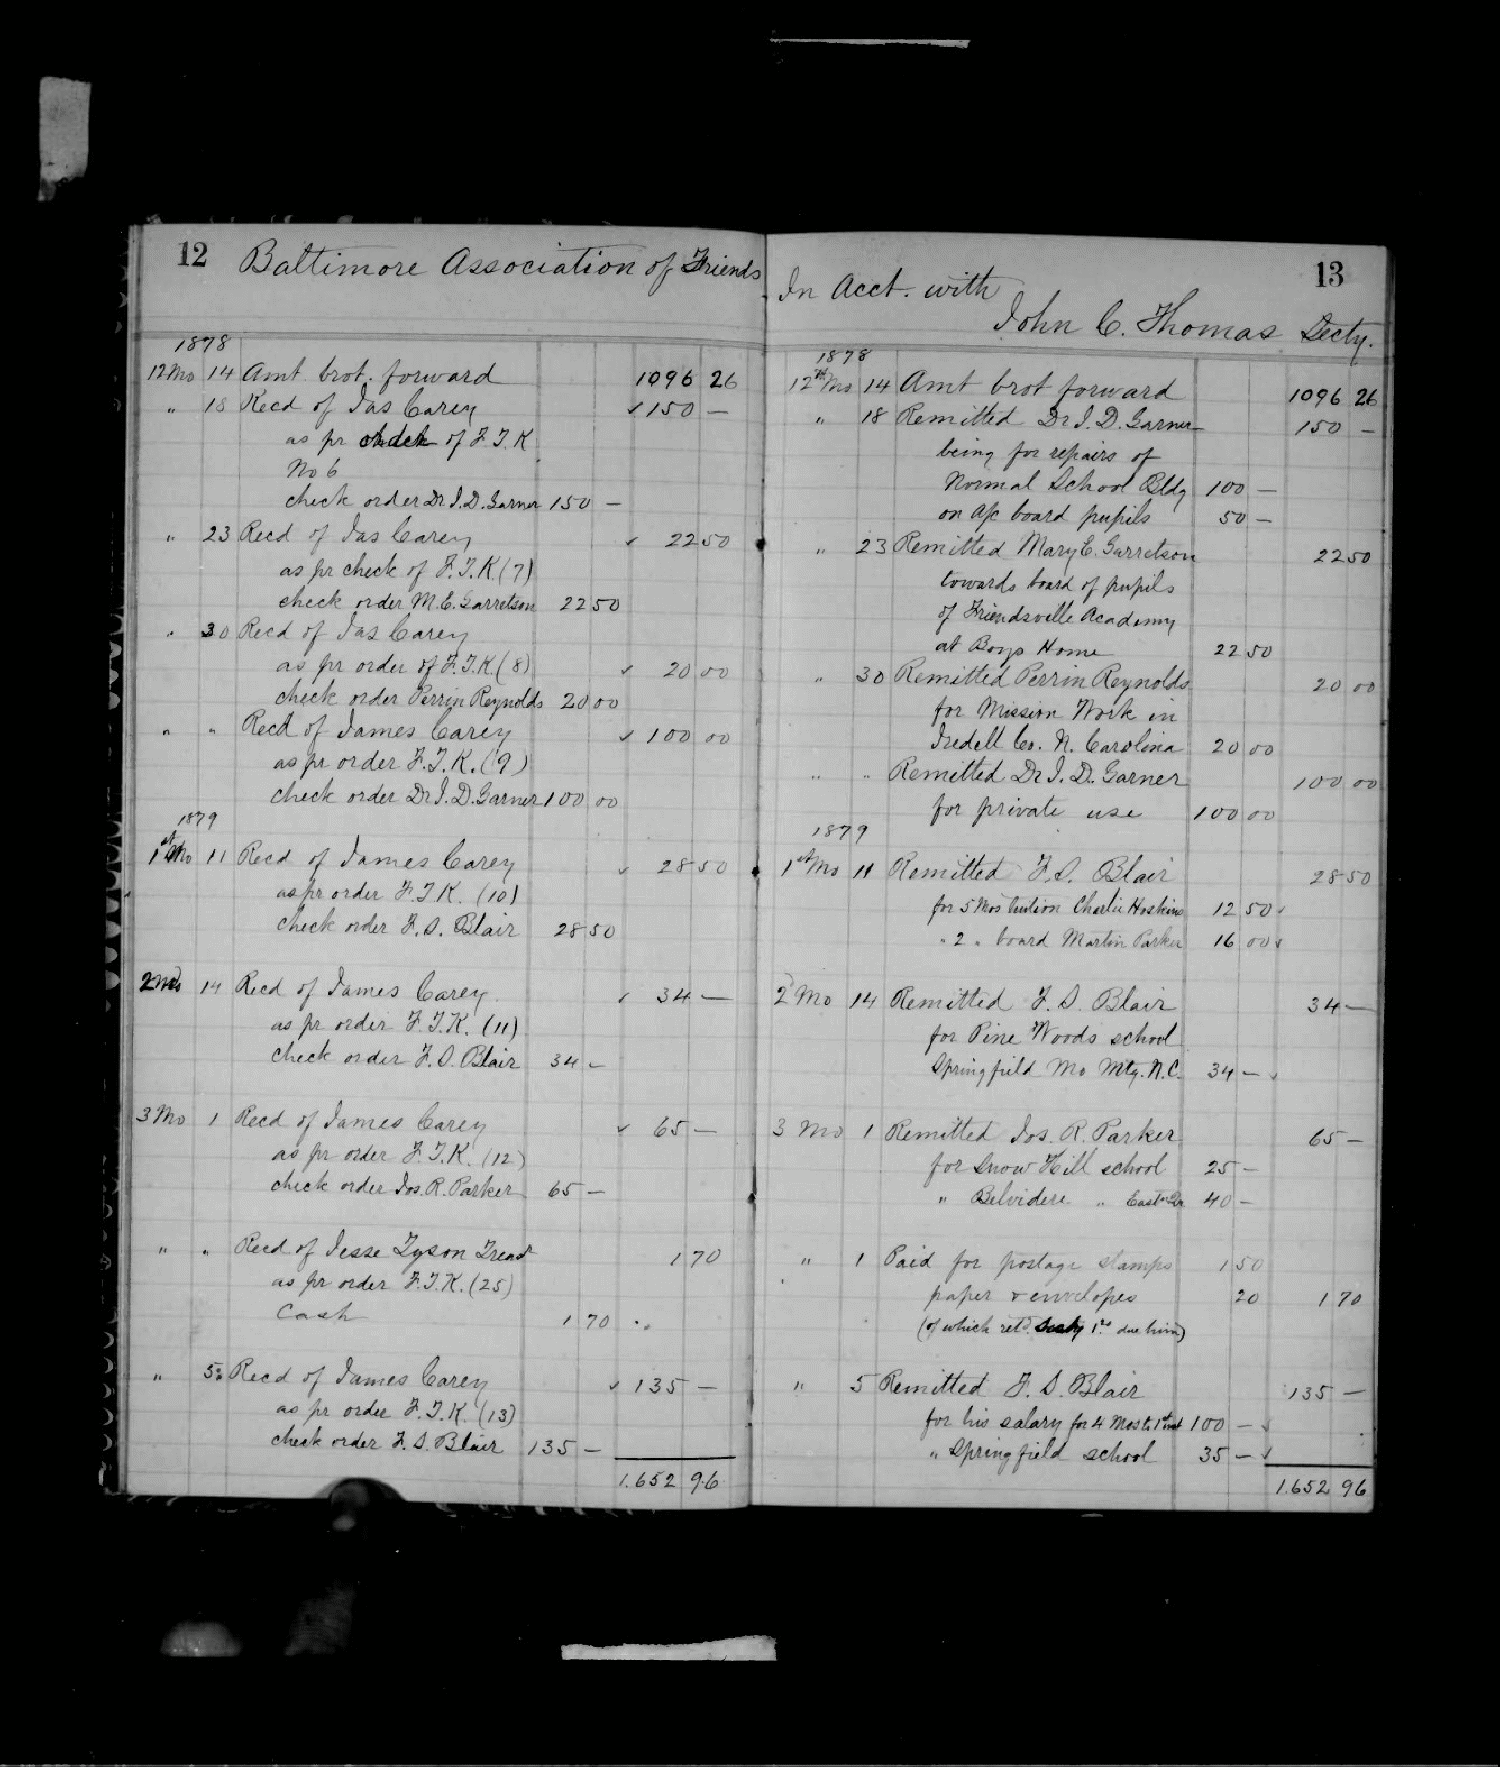 12 Baltimore Association of Friends
1878
12 Mo 14 Amt brot. forward 1096 26
" 18 Recd of Jas Carey ✓ 150 —
as pr check of F. T. K
No 6
check order Dr J. D. Garner 150 —
" 23 Recd of Jas Carey ✓ 22 50
as pr check of F. T. K. (7)
check order M. E. Garretson 22 50
" 30 Recd of Jas Carey
as pr order of F. T. K. (8) ✓ 20 00
check order Perrin Reynolds 20 00
" " Recd of James Carey ✓ 100 00
as pr order F. T. K. (9)
check order Dr J. D. Garner 100 00
1879
1st Mo 11 Recd of James Carey ✓ 28 50
as pr order F. T. K. (10)
check order F. S. Blair 28 50
2 Mo 14 Recd of James Carey ✓ 34 —
as pr order F. T. K. (11)
check order F. S. Blair 34 —
3 Mo 1 Recd of James Carey ✓ 65 —
as pr order F. T. K. (12)
check order Jos. R. Parker 65 —
" " Recd of Jesse Tyson Treas 1 70
as pr order F. T. K. (25)
Cash 1 70
" 5 Recd of James Carey ✓ 135 —
as pr order F. T. K. (13)
check order F. S. Blair 135 —
1.652 96
13
In Acct. with
John C. Thomas Secty.
1878
12th Mo 14 Amt brot forward 1096 26
" 18 Remitted Dr J. D. Garner 150 —
being for repairs of
Normal School Bldg 100 —
on a/c board pupils 50 —
" 23 Remitted Mary E. Garretson 22 50
towards board of pupils
of Friendsville Academy
at Boys Home 22 50
" 30 Remitted Perrin Reynolds 20 00
for Mission Work in
Iredell Co. N. Carolina 20 00
" " Remitted Dr J. D. Garner 100 00
for private use 100 00
1879
1st Mo 11 Remitted F. S. Blair 28 50
for 5 Mos tuition Charlie Hoskins 12 50 ✓
" 2 " board Martin Parker 16 00 ✓
2 Mo 14 Remitted F. S. Blair 34 —
for Pine Woods school
Springfield Mo Mtg. N. C. 34 — ✓
3 Mo 1 Remitted Jos. R. Parker 65 —
for Snow Hill school 25 —
" Belvidere " 40 —
" 1 Paid for postage stamps 1 50
paper & envelopes 20 1 70
(of which retd Secty 1.00 due him)
" 5 Remitted F. S. Blair 135 —
for his salary for 4 Mos to 1st inst 100 — ✓
" Springfield school 35 — ✓
1.652 96